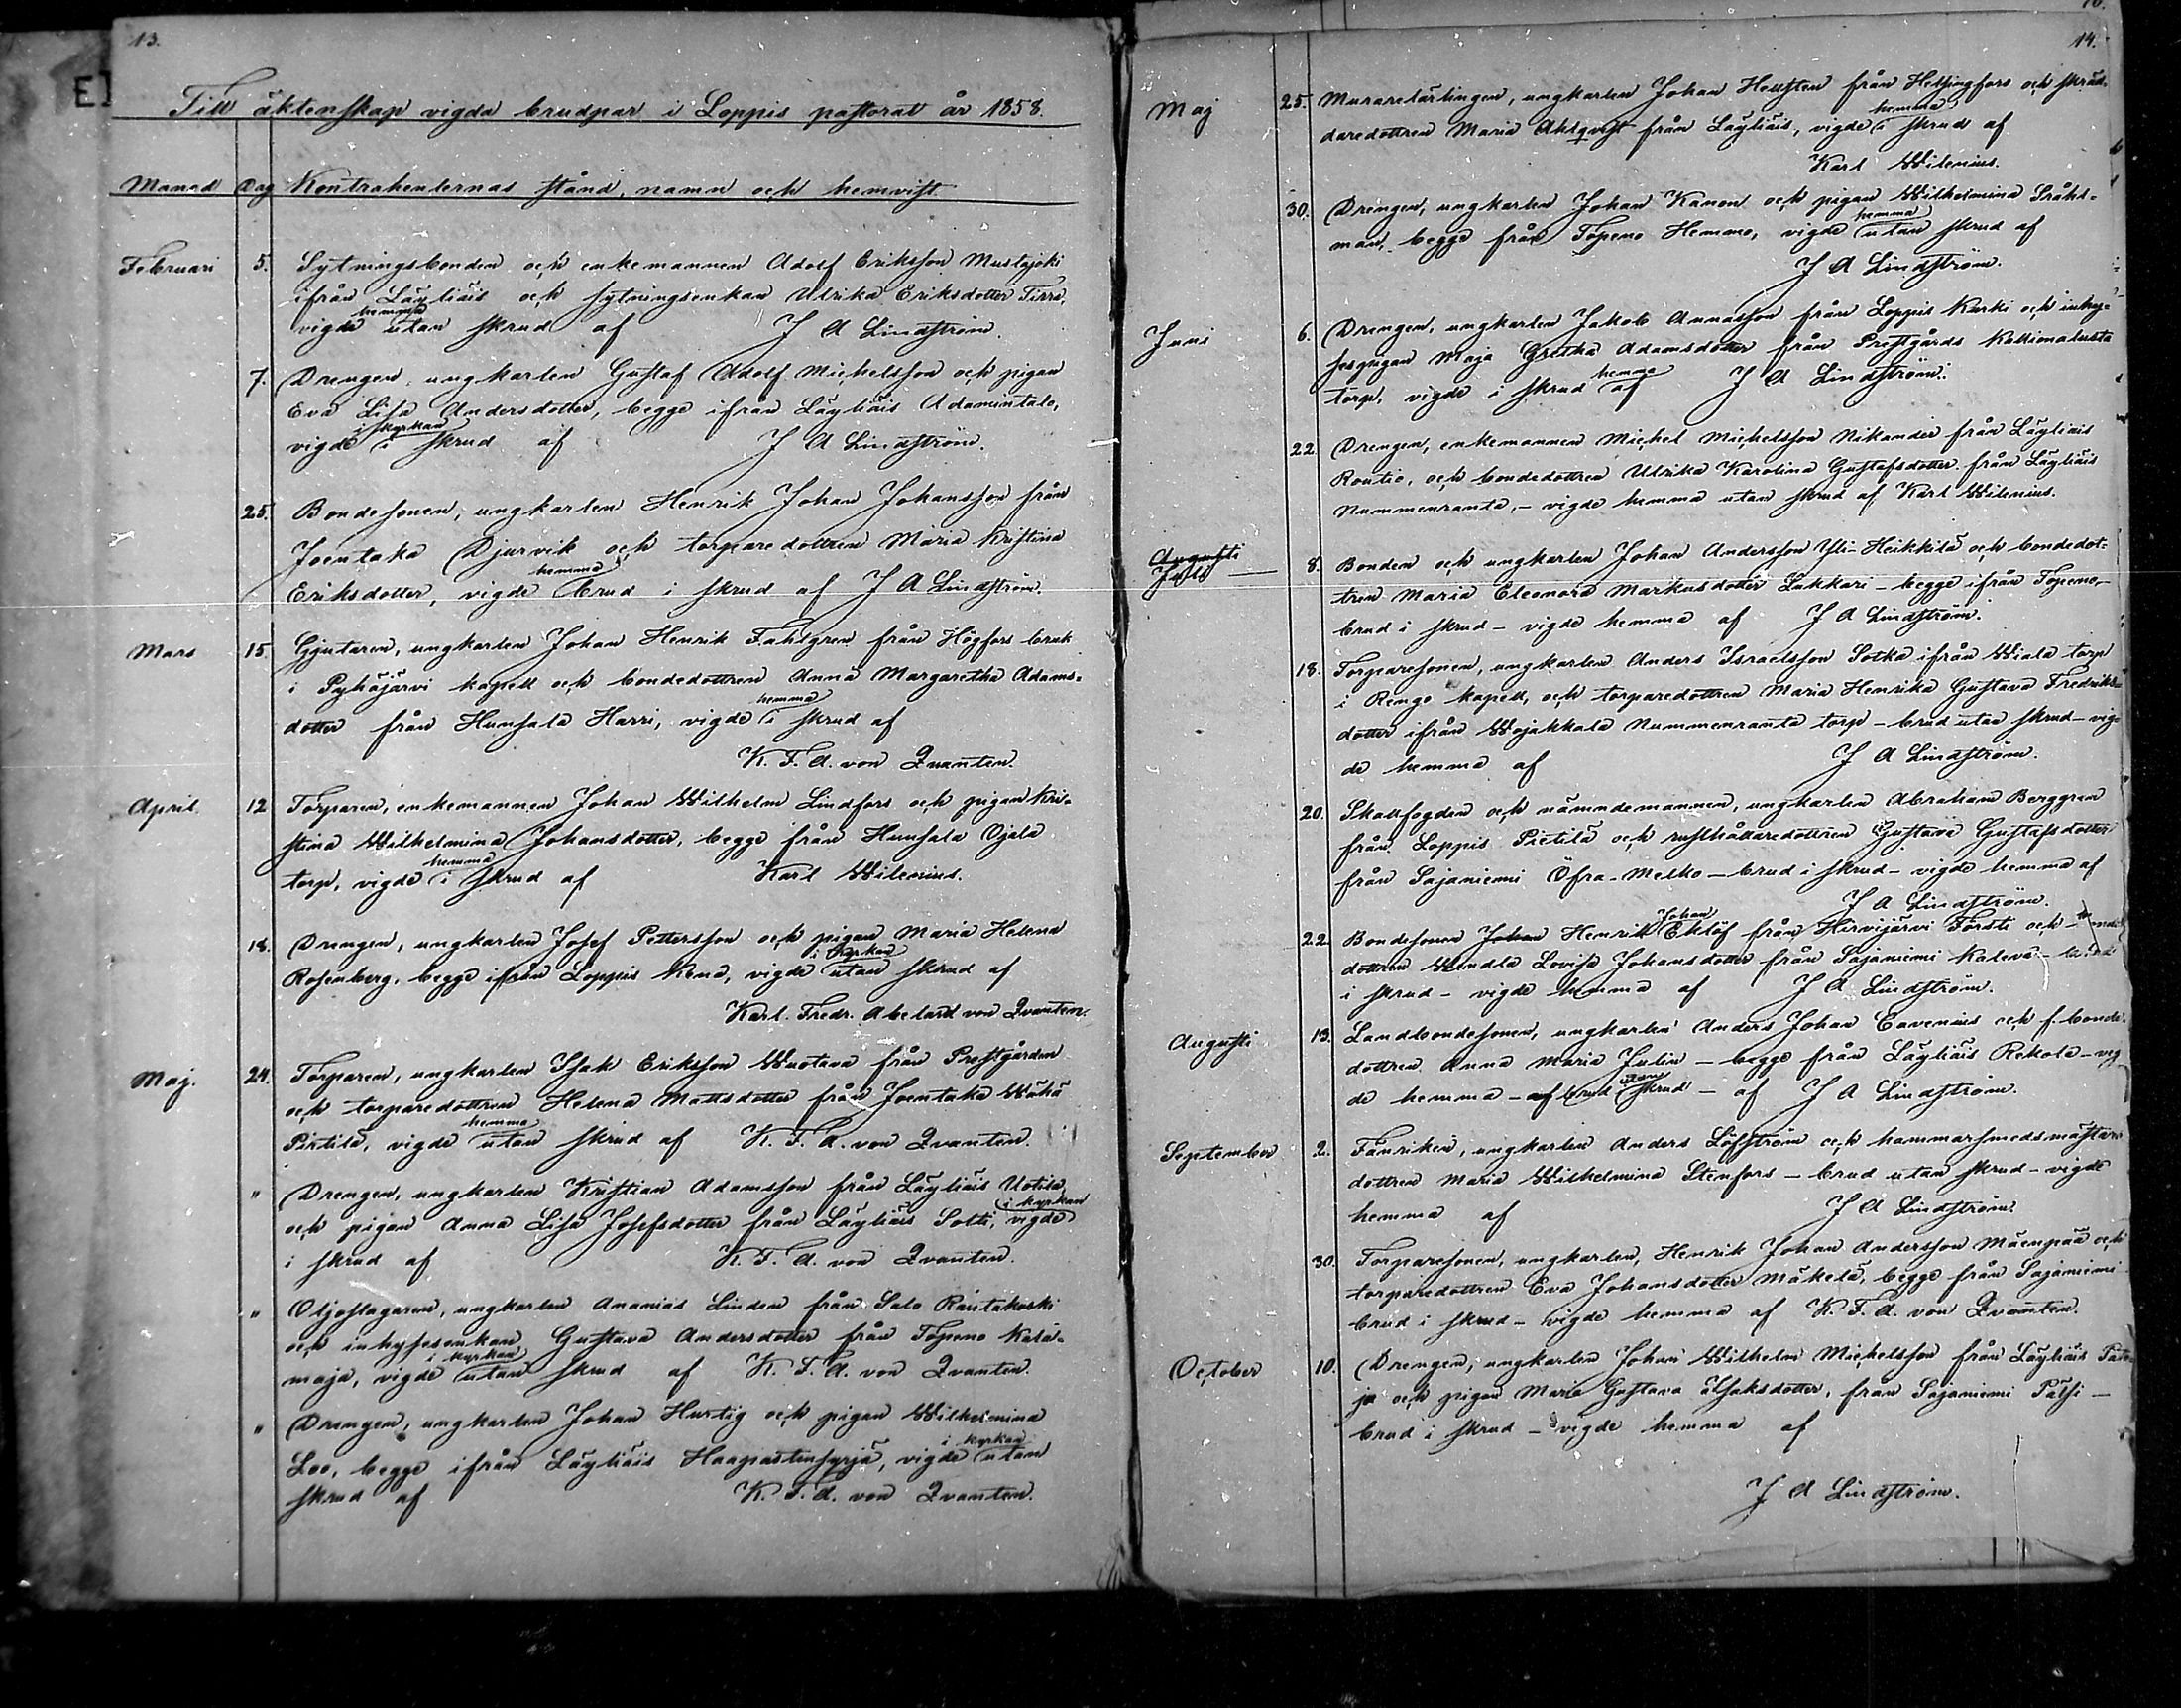 13.
Till äktenskap vigda brudpar i Loppis pastorat år 1858.
Manad Dag Kontrahenternas stånd, namn och hemvist.
Februari 5. Sytningsbonden och enkemannen Adolf Eriksson Mustajoki
ifrån Läyliäis och sytningsenkan Ulrika Eriksdotter Tirra,
hemma
vigde utan skrud af J A Lindström.
7. Drengen, ungkarlen Gustaf Adolf Michelsson och pigan
Eva Lisa Andersdotter, begge ifrån Läyliäis Adamintalo,
i kyrkan
vigde i skrud af J A Lindström.
25. Bondesonen, ungkarlen Henrik Johan Johansson från
Joentaka Djurvik och torparedottren Maria Kristina
hemma
Eriksdotter, vigde brud i skrud af J A Lindström.
Mars 15 Gjutaren, ungkarlen Johan Henrik Fahlgren från Högfors bruk
i Pyhäjärvi kapell och bondedottren Anna Margaretha Adams-
hemma
dotter från Hunsala Harri, vigde i skrud af
K. F. A. von Qvanten.
April. 12 Torparen, enkemannen Johan Wilhelm Lindfors och pigan Kri-
stina Wilhelmina Johansdotter, begge från Hunsala Ojala
hemma
torp, vigde i skrud af Karl Wilenius.
18. Drengen, ungkarlen Josef Pettersson och pigan Maria Helena
i kyrkan
Rosenberg, begge ifrån Loppis Kena, vigde utan skrud af
Karl. Fredr. Abelard von Qvanten.
Maj. 24. Torparen, ungkarlen Isak Eriksson Wuotava från Prestgården
och torparedottren Helena Mattsdotter från Joentaka Wähä
hemma
Pirtilä, vigde utan skrud af K. F. A. von Qvanten.
" Drengen, ungkarlen Kristian Adamsson från Läyliäis Uotila
i kyrkan
och pigan Anna Lisa Josefsdotter från Läyliäis Sotti, vigde
i skrud af K. F. A. von Qvanten.
" Oljeslagaren, ungkarlen Ananias Linden från Salo Rautakoski
och inhysesenkan Gustava Andersdotter från Topeno Kata-
i kyrkan
maja, vigde utan skrud af K. F. A. von Qvanten.
" Drengen, ungkarlen Johan Hurtig och pigan Wilhelmina
i kyrkan
Loo, begge ifrån Läyliäis Haapastensyrjä, vigde utan
skrud af K. F. A. von Qvanten.
14.
Maj 25. Murarelärlingen, ungkarlen Johan Hellsten från Helsingfors och skräd-
hemma
daredottren Maria Ahlqvist från Läyliäis, vigde i skrud af
Karl Wilenius.
30. Drengen, ungkarlen Johan Kanon och pigan Wilhelmina Stråhl-
hemma
man, begge från Topeno Hemmo, vigde utan skrud af
J A Lindström.
Juni 6. Drengen, ungkarlen Jakob Annasson från Loppis Kurki och inhy-
sespigan Maja Gretha Adamsdotter från Prestgårds Kallionalusta
hemma
torp, vigde i skrud af J A Lindström.
22 Drengen, enkemannen Michel Michelsson Nikander från Läyliäis
Routio, och bondedottren Ulrika Karolina Gustafsdotter från Läyliäis
Nummenranta, - vigde hemma utan skrud af Karl Wilenius.
Augusti
Juli 8. Bonden och ungkarlen Johan Andersson Yli-Heikkilä och bondedot-
tren Maria Eleonora Markusdotter Lukkari - begge ifrån Topeno,
brud i skrud - vigde hemma af J A Lindström.
18. Torparesonen, ungkarlen Anders Israelsson Sotka ifrån Wiala torp
i Rengo kapell, och torparedottren Maria Henrika Gustava Fredriks-
dotter ifrån Wojakkala Nummenranta torp - brud utan skrud - vig-
de hemma af J A Lindström.
20. Skallfogden och nämndemannen, ungkarlen Abraham Berggren
från Loppis Pietilä och rusthållaredottren Gustava Gustafsdotter
från Sajaniemi Öfra-Melko - brud i skrud - vigde hemma af
J A Lindström.
Johan
22. Bondesonen Johan Henrik Eklöf från Hirvijärvi Försti och bonde
dottren Wendla Lovisa Johansdotter från Sajaniemi Kaleva - brud
i skrud - vigde hemma af J A Lindström.
Augusti 13. Landbondesonen, ungkarlen Anders Johan Cavenius och f. bonde
dottren Anna Maria Julin - begge från Läyliäis Rekola - vig-
utan
de hemma - af brud skrud - af J A Lindström.
September 2. Fanriken, ungkarlen Anders Löfström och hammarsmedsmästare
dottren Maria Wilhelmina Stenfors - brud utan skrud - vigde
hemma af J A Lindström.
30. Torparesonen, ungkarlen, Henrik Johan Andersson Mäenpää och
torparedottren Eva Johansdotter Mäkelä, begge från Sajaniemi
brud i skrud - vigde hemma af K. F. A. von Qvanten.
October 10. Drengen, ungkarlen Johan Wilhelm Michelsson från Läyliäis
och pigan Maria Gustava Isaksdotter, från Sajaniemi Pätsi -
brud i skrud - vigde hemma af
J A Lindström.